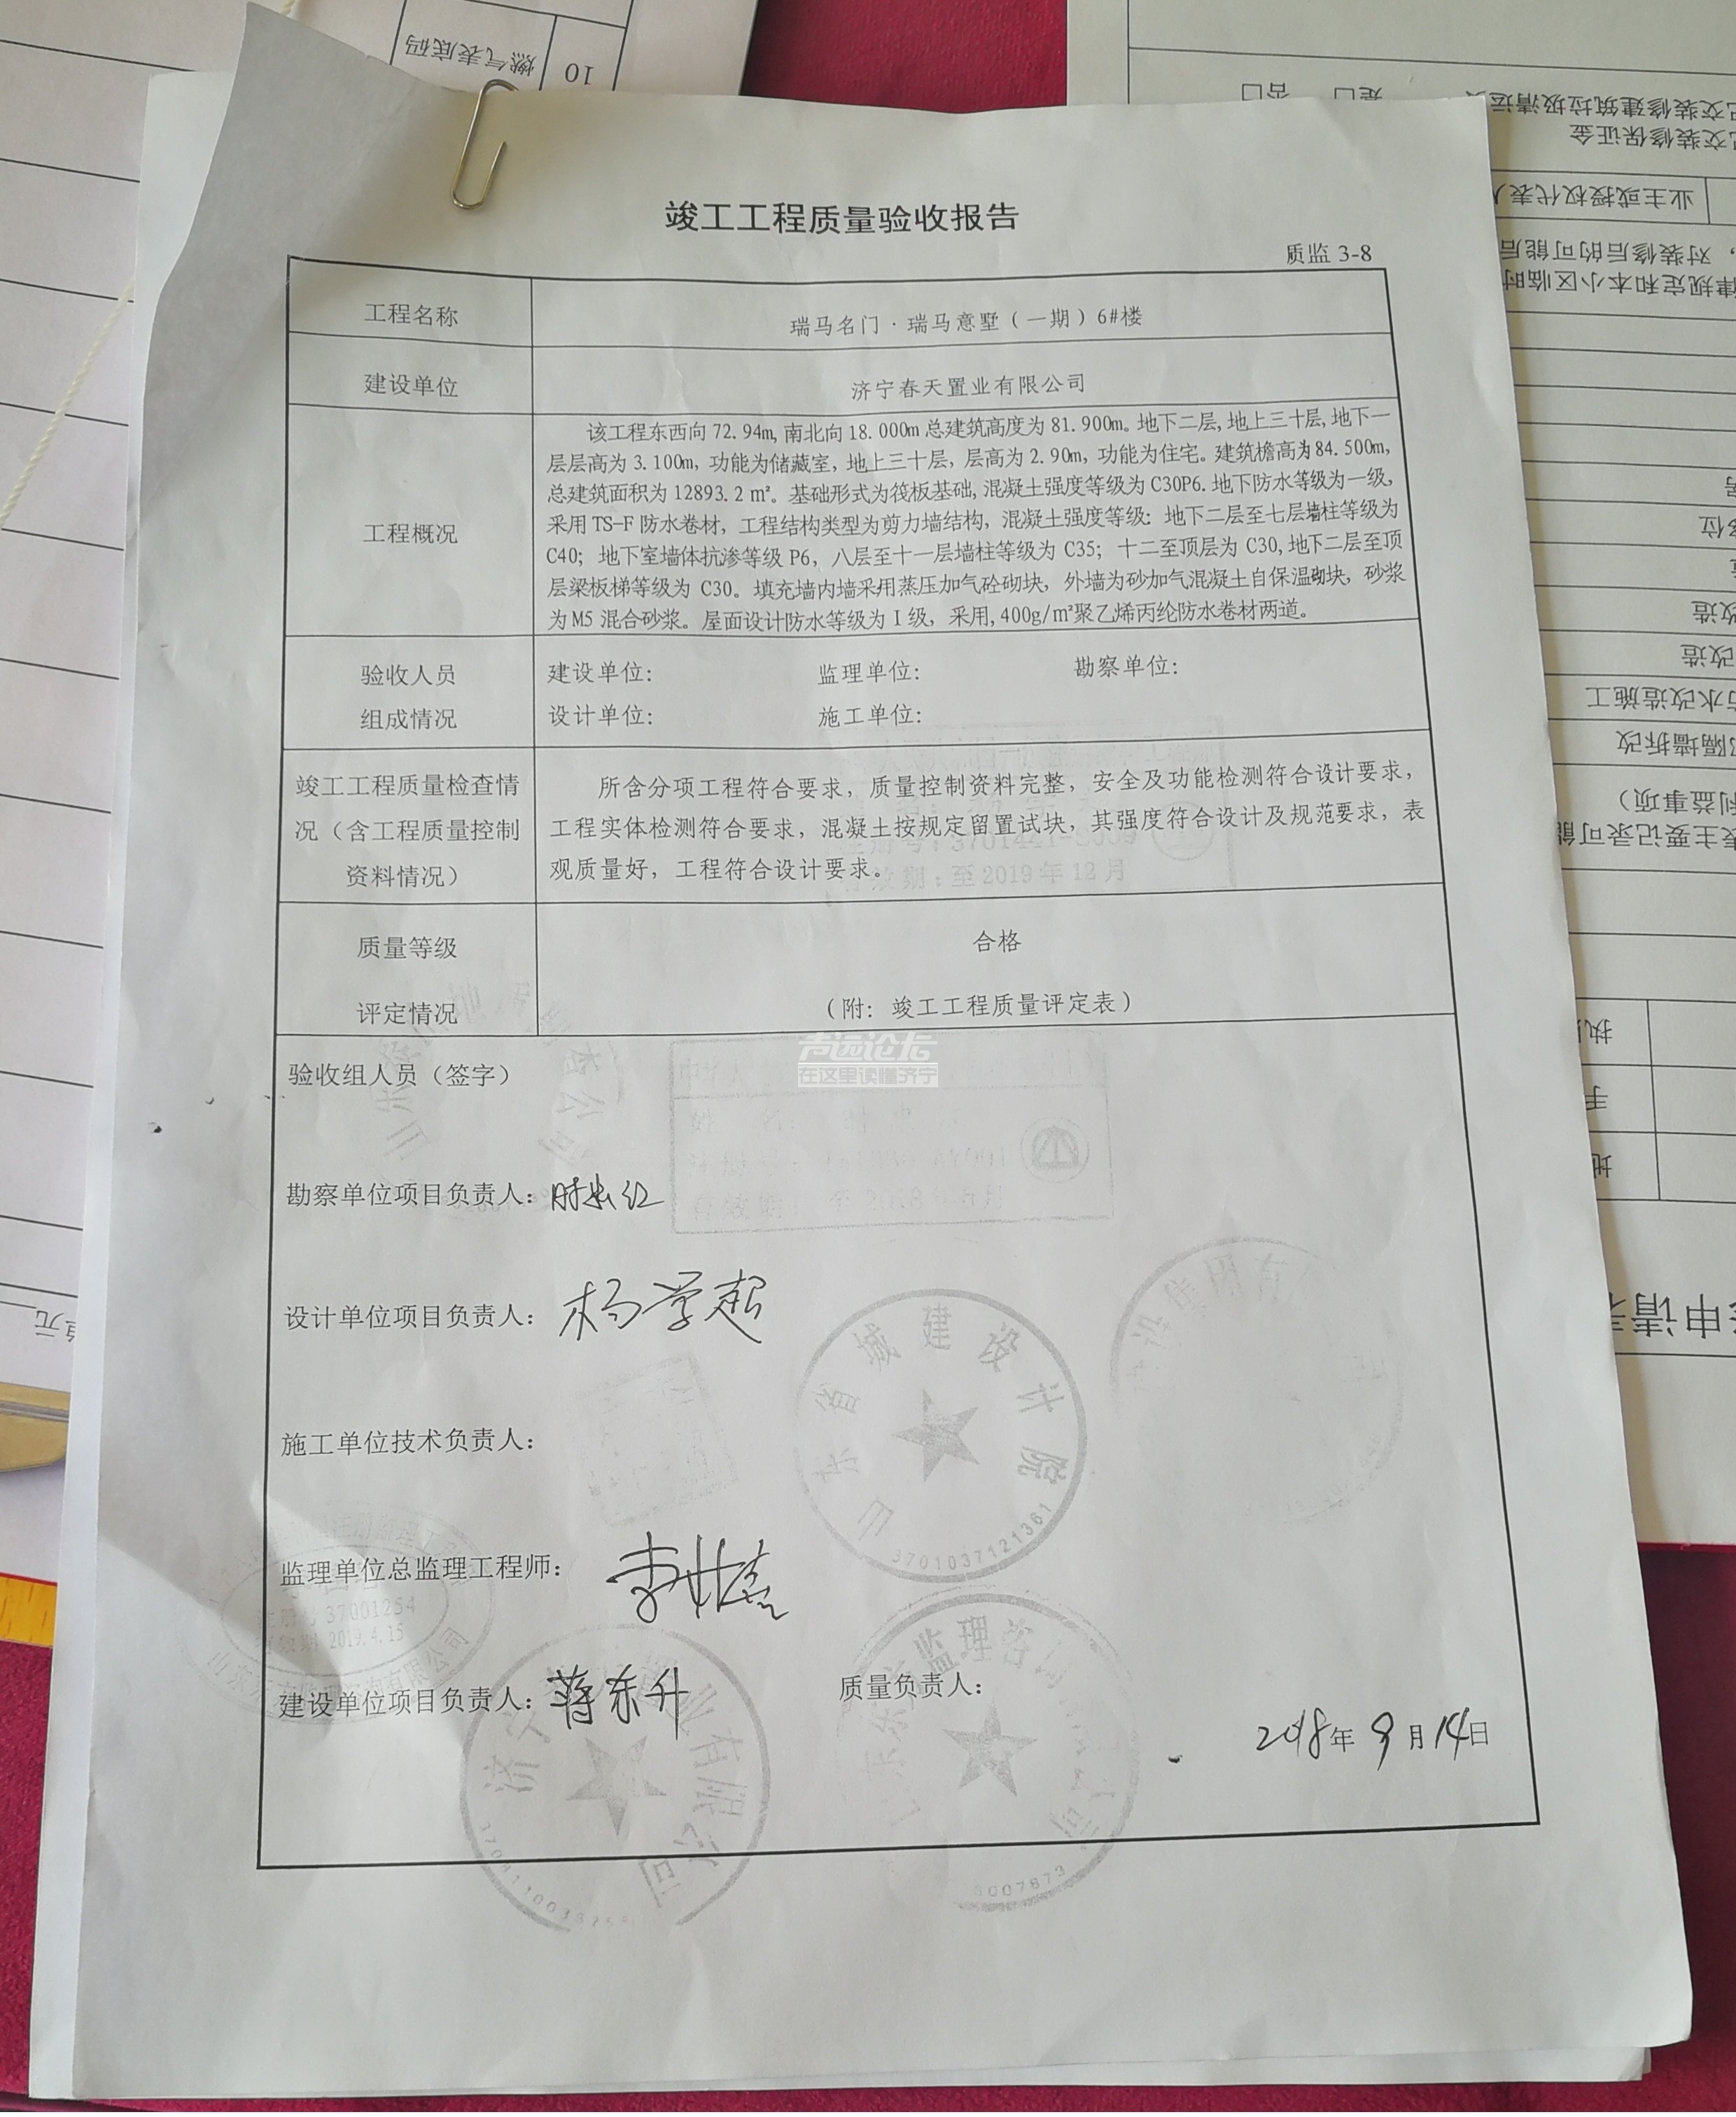 竣工工程质量验收报告
质监 3-8
工程名称
瑞马名门·瑞马意墅（一期）6#楼
建设单位
济宁春天置业有限公司
工程概况
该工程东西向 72.94m, 南北向 18.000m 总建筑高度为 81.900m。地下二层, 地上三十层, 地下一
层层高为 3.100m, 功能为储藏室, 地上三十层, 层高为 2.90m, 功能为住宅。建筑檐高为 84.500m,
总建筑面积为 12893.2 ㎡。基础形式为筏板基础, 混凝土强度等级为 C30P6. 地下防水等级为一级,
采用 TS-F 防水卷材, 工程结构类型为剪力墙结构, 混凝土强度等级: 地下二层至七层墙柱等级为
C40; 地下室墙体抗渗等级 P6, 八层至十一层墙柱等级为 C35; 十二至顶层为 C30, 地下二层至顶
层梁板梯等级为 C30。填充墙内墙采用蒸压加气砼砌块, 外墙为砂加气混凝土自保温砌块, 砂浆
为 M5 混合砂浆。屋面设计防水等级为 I 级, 采用, 400g/㎡聚乙烯丙纶防水卷材两道。
验收人员
组成情况
建设单位: 监理单位: 勘察单位:
设计单位: 施工单位:
竣工工程质量检查情
况（含工程质量控制
资料情况）
所含分项工程符合要求, 质量控制资料完整, 安全及功能检测符合设计要求,
工程实体检测符合要求, 混凝土按规定留置试块, 其强度符合设计及规范要求, 表
观质量好, 工程符合设计要求。
至 2019 年 12 月
质量等级
评定情况
合格
（附: 竣工工程质量评定表）
在这里读懂济宁
验收组人员（签字）
勘察单位项目负责人:
设计单位项目负责人: 杨学超
施工单位技术负责人:
监理单位总监理工程师:
建设单位项目负责人: 蒋东升
质量负责人:
2018年 9月 14日
山东省城建设计院
3701037121361
37001254
2019.4.15
监理咨询
0007873
燃气表底码
10
是□ 否□
已交装修建筑垃圾清运
交装修保证金
业主或授权代表人
对装修后的可能后
律规定和本小区临时
改造
改造
水改造施工
隔墙拆改
利益事项）
主要记录可能
申请
单元